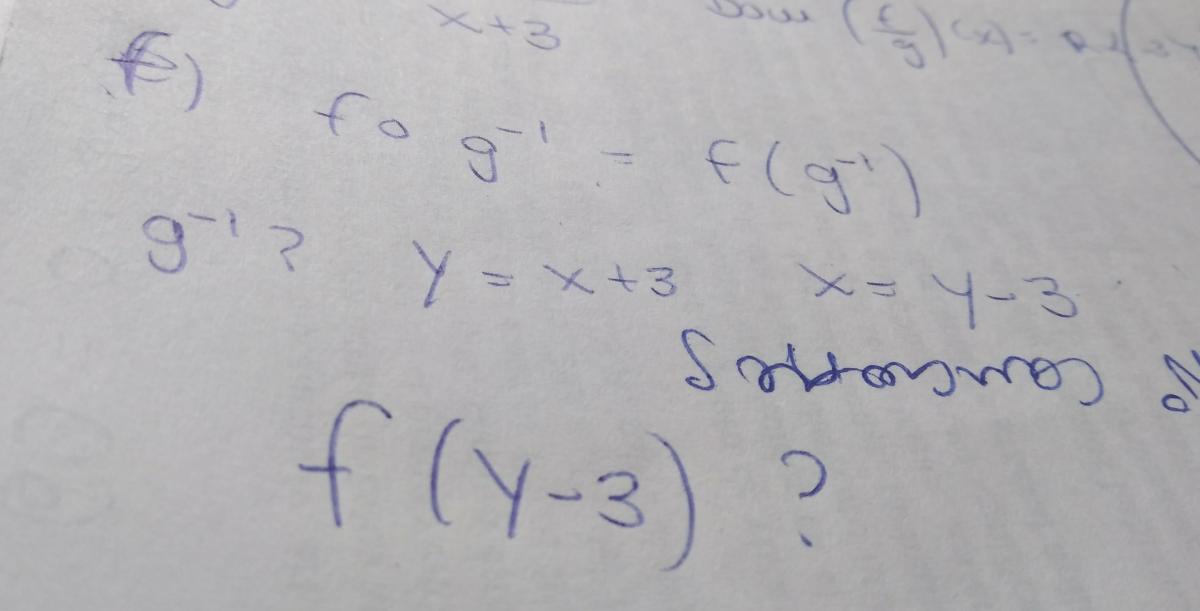 x+3 Dom (f/g)(x) =
f)
f o g⁻¹ = f(g⁻¹)
g⁻¹? y = x+3 x = y-3
f(y-3)?